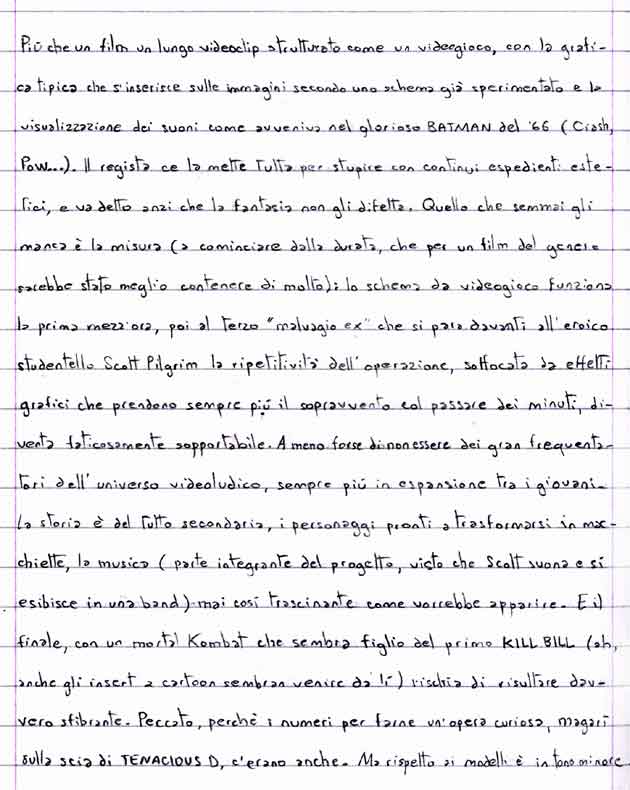 Più che un film un lungo videoclip strutturato come un videogioco, con la grafi-
ca tipica che s'inserisce sulle immagini secondo uno schema già sperimentato e la
visualizzazione dei suoni come avveniva nel glorioso BATMAN del '66 (Crash,
Pow...). Il regista ce la mette tutta per stupire con continui espedienti este-
tici, e va detto anzi che la fantasia non gli difetta. Quello che semmai gli
manca è la misura (a cominciare dalla durata, che per un film del genere
sarebbe stato meglio contenere di molto): lo schema da videogioco funziona
la prima mezz'ora, poi al terzo "malvagio ex" che si para davanti all'eroico
studentello Scott Pilgrim la ripetitività dell'operazione, soffocata da effetti
grafici che prendono sempre più il sopravvento col passare dei minuti, di-
venta faticosamente sopportabile. A meno forse di non essere dei gran frequenta-
tori dell'universo videoludico, sempre più in espansione tra i giovani.
La storia è del tutto secondaria, i personaggi pronti a trasformarsi in mac-
chiette, la musica (parte integrante del progetto, visto che Scott suona e si
esibisce in una band) mai così trascinante come vorrebbe apparire. E il
finale, con un mortal Kombat che sembra figlio del primo KILL BILL (ah,
anche gli insert a cartoon sembran venire da lì) rischia di risultare dav-
vero sfibrante. Peccato, perchè i numeri per farne un'opera curiosa, magari
sulla scia di TENACIOUS D, c'erano anche. Ma rispetto ai modelli è in tono minore